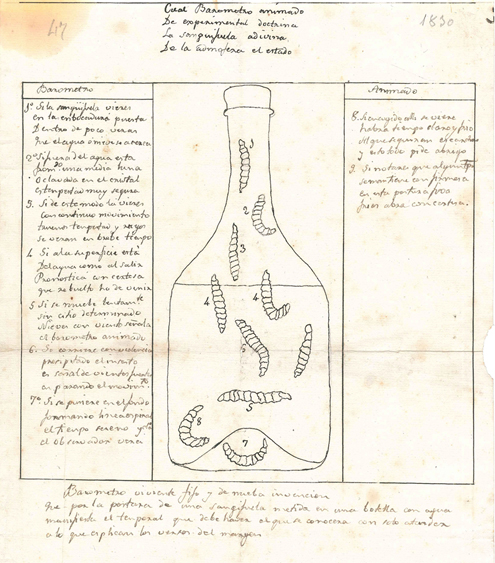 47
1830
Cual Barometro animado
De experimental doctrina
La sanguijuela adivina
De la atmosfera el estado
Barometro
1º Si la sanguijuela vieres
en la embocadura puesta
Dentro de poco veras
Que el agua
2ª Si fuera del agua esta
media luna
O clavada en el cristal
es tempestad muy segura
3. Si de este modo la vieres
Con continuo movimiento
truenos tempestad y rayos
se veran en brebe tiempo
4 Si a la superficie está
Del agua como al salir
Pronostica con certesa
que rebuelto ha de venir
5 Si se muebe
sin sitio determinado
Nieve con viento señala
el barometro animado
6. Si
precipitado el
es señal de vientos fuertes
en parando el
7º Si se pusiere en el fondo
formando linea espiral
el tiempo sereno
el observador verá
Animado
8. Si se viere
habra tiempo claro y frio
9. Si notare que
se mantiene con
en esta postura
1
2
3
4
4
5
6
7
8
Barometro viviente fijo y de nueba invencion
Que por la postura de una sanguijuela metida en una botella con agua
manifiesta el temporal que debe haber el que se conocera con solo atender
a lo que esplican los versos del margen